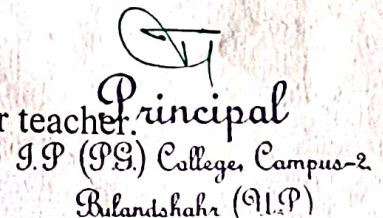 r teacher.
Principal
I.P (P.G.) College, Campus-2
Bulandshahr (U.P)